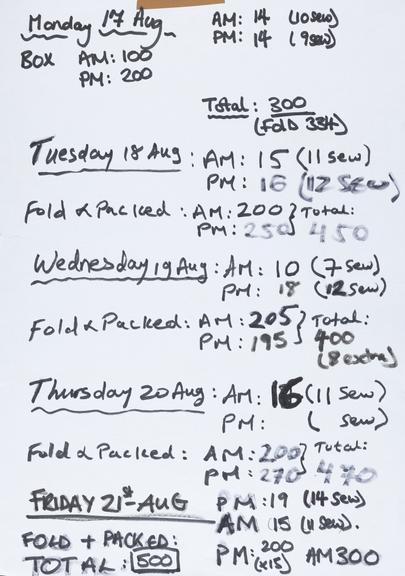 Monday 17 Aug AM: 14 (10 sew)
PM: 14 (9 sew)
BOX AM: 100
PM: 200
Total: 300
(FOLD 334)
Tuesday 18 Aug: AM: 15 (11 sew)
PM: 16 (12 sew)
Fold & Packed: AM: 200 } Total:
PM: 250 } 450
Wednesday 19 Aug: AM: 10 (7 sew)
PM: 18 (12 sew)
Fold & Packed: AM: 205 } Total:
PM: 195 } 400
(8 extra)
Thursday 20 Aug: AM: 16 (11 sew)
PM: ( sew)
Fold & Packed: AM: 200 } Total:
PM: 270 } 470
FRIDAY 21st AUG PM: 19 (14 sew)
AM 15 (11 sew).
FOLD + PACKED:
TOTAL: 500 PM: 200 (x15) AM 300